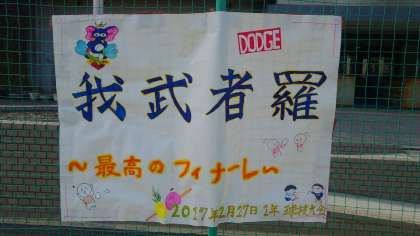 DODGE
我武者羅
～最高のフィナーレ～
2017年2月27日 1年 球技大会